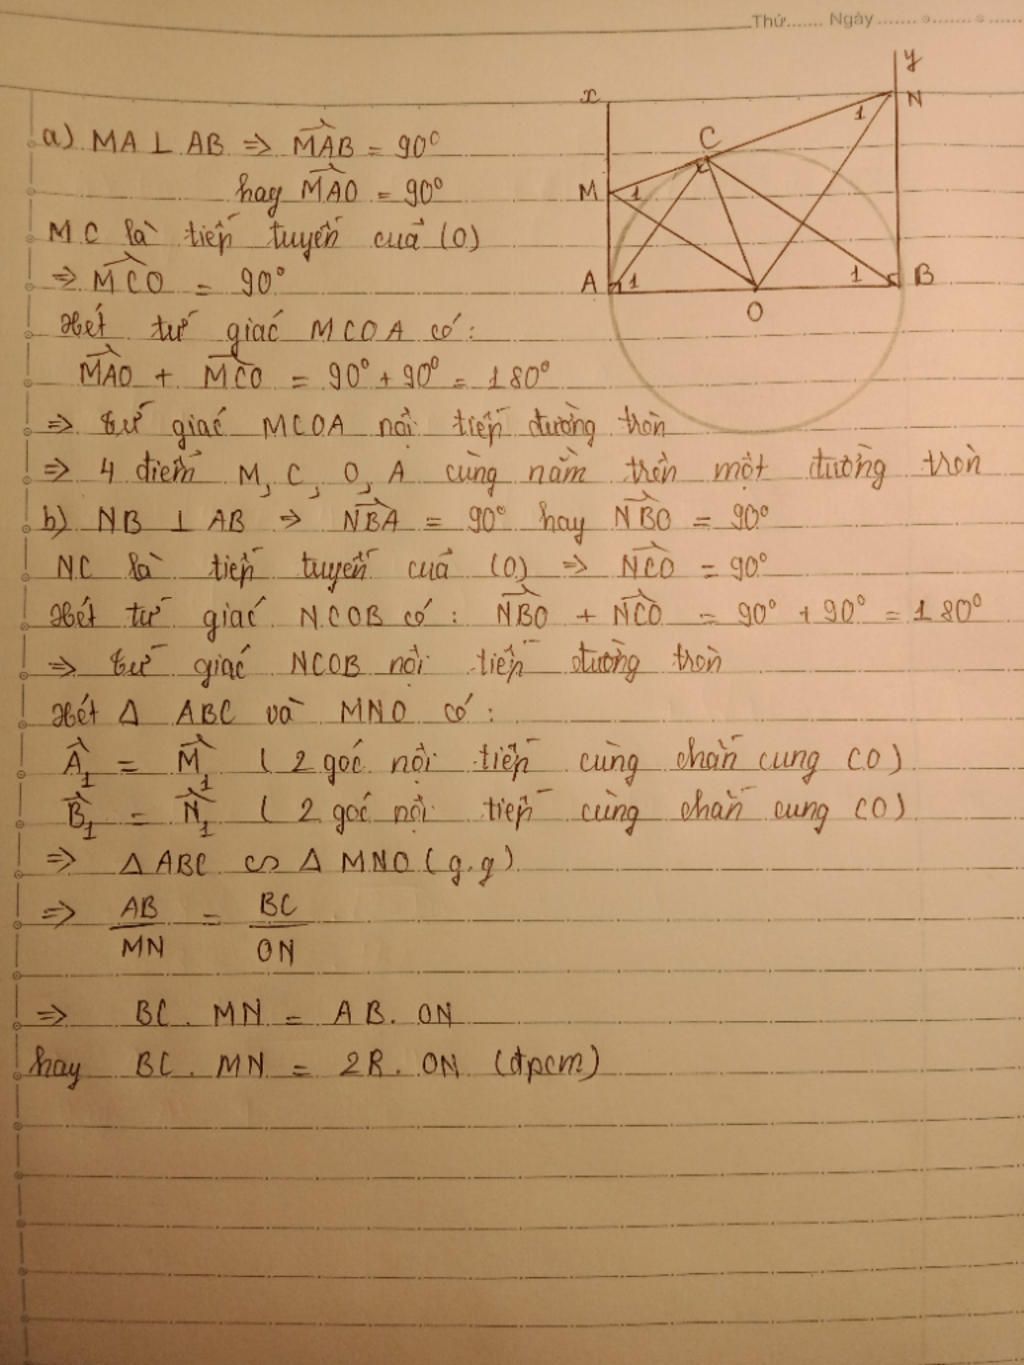 Thứ....... Ngày.................
x
y
N
1
C
M
1
A
1
1
B
O
a) MA ⊥ AB => \widehat{MAB} = 90°
hay \widehat{MAO} = 90°
MC là tiếp tuyến của (O)
=> \widehat{MCO} = 90°
Xét tứ giác MCOA có:
\widehat{MAO} + \widehat{MCO} = 90° + 90° = 180°
=> tứ giác MCOA nội tiếp đường tròn
=> 4 điểm M, C, O, A cùng nằm trên một đường tròn
b) NB ⊥ AB => \widehat{NBA} = 90° hay \widehat{NBO} = 90°
NC là tiếp tuyến của (O) => \widehat{NCO} = 90°
Xét tứ giác NCOB có: \widehat{NBO} + \widehat{NCO} = 90° + 90° = 180°
=> tứ giác NCOB nội tiếp đường tròn
Xét Δ ABC và MNO có:
\widehat{A}_1 = \widehat{M}_1 (2 góc nội tiếp cùng chắn cung CO)
\widehat{B}_1 = \widehat{N}_1 (2 góc nội tiếp cùng chắn cung CO)
=> Δ ABC ∽ Δ MNO (g.g)
=> AB/MN = BC/ON
=> BC. MN = AB. ON
hay BC. MN = 2R. ON (đpcm)